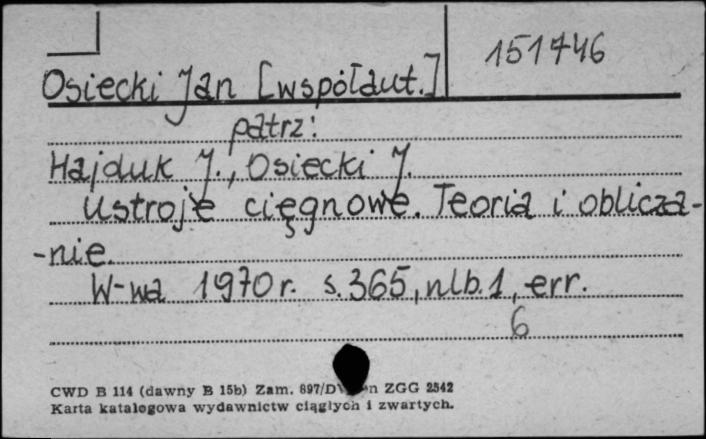 151746
Osiecki Jan [współaut.]
patrz:
Hajduk J., Osiecki J.
Ustroje cięgnowe. Teoria i oblicza-
-nie.
W-wa 1970 r. s. 365, nlb. 1, err.
6
CWD B 114 (dawny B 15b) Zam. 897/D ZGG 2542
Karta katalogowa wydawnictw ciągłych i zwartych.